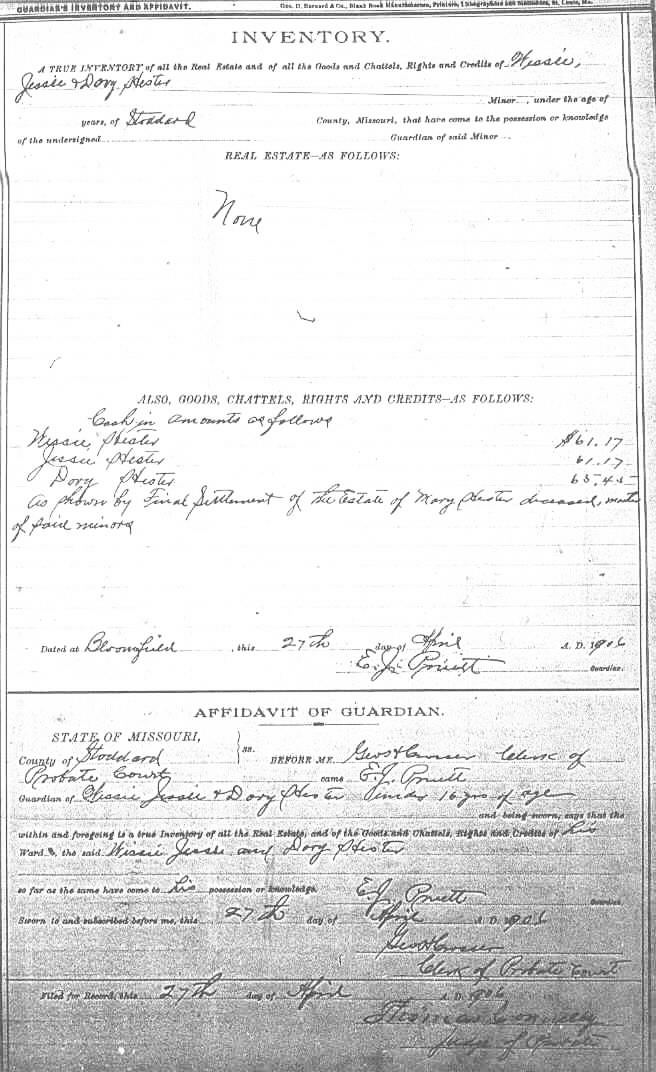 GUARDIAN'S INVENTORY AND AFFIDAVIT.
Geo. D. Barnard & Co., Blank Book Manufacturers, Printers, Lithographers and Stationers, St. Louis, Mo.
INVENTORY.
A TRUE INVENTORY of all the Real Estate and of all the Goods and Chattels, Rights and Credits of Wissie,
Jessie & Dovy Hester
Minor..., under the age of
years, of Stoddard County, Missouri, that have come to the possession or knowledge
of the undersigned Guardian of said Minor
REAL ESTATE—AS FOLLOWS:
None
ALSO, GOODS, CHATTELS, RIGHTS AND CREDITS—AS FOLLOWS:
Cash in amounts as follows
Wissie Hester $61.17
Jessie Hester 61.17
Dovy Hester 65.45
As shown by Final Settlement of the Estate of Mary Hester deceased,
of said minors
Dated at Bloomfield, this 27th day of April A. D. 1906
E. J. Pruett
Guardian.
AFFIDAVIT OF GUARDIAN.
STATE OF MISSOURI,
County of Stoddard ss. BEFORE ME, Clerk of
Probate Court came E. J. Pruett
Guardian of Wissie Jessie & Dovy Hester Under 16 yrs of age
and being sworn, says that the
within and foregoing is a true Inventory of all the Real Estate, and of the Goods and Chattels, Rights and Credits of his
Ward s, the said Wissie Jessie and Dovy Hester
so far as the same have come to his possession or knowledge. E. J. Pruett
Guardian
Sworn to and subscribed before me, this 27th day of April A. D. 1906
Clerk of Probate Court
Filed for Record, this 27th day of April A. D. 1906
Thomas Connelly
Judge of Probate